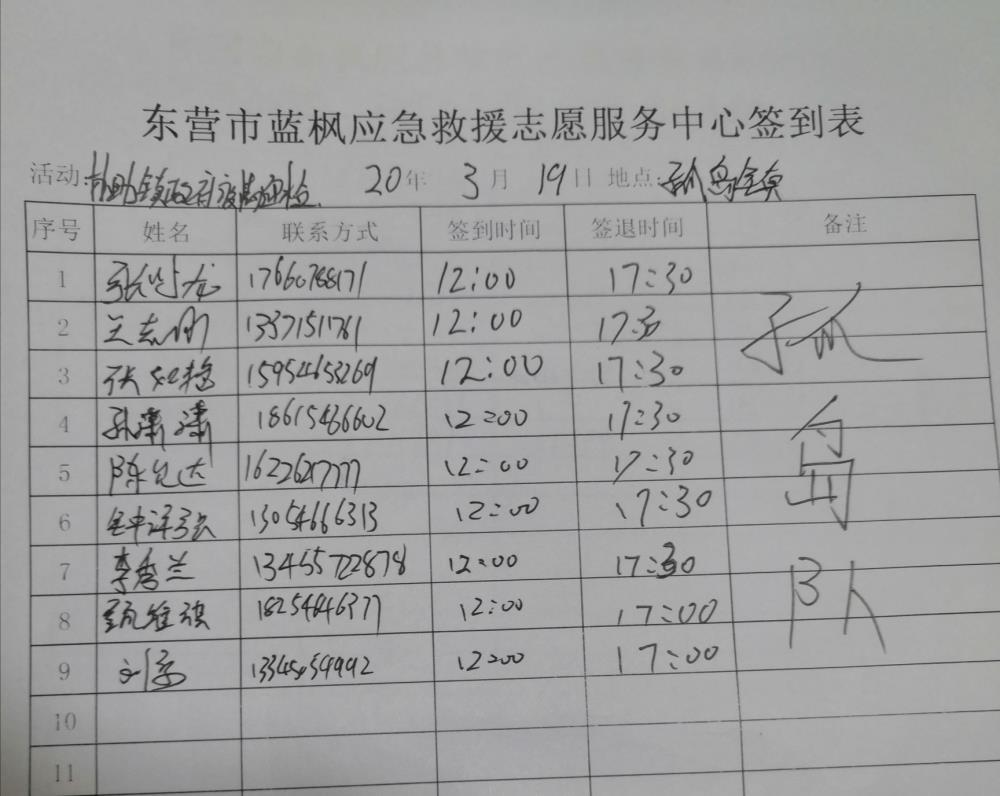 东营市蓝枫应急救援志愿服务中心签到表
活动:协助镇政府疫情 20年 3月 19日 地点:孤岛镇
序号 姓名 联系方式 签到时间 签退时间 备注
1 17660788171 12:00 17:30
2 王志刚 13371511761 12:00 17:30
3 15954653269 12:00 17:30
4 孙潇潇 18615486602 12:00 17:30
5 陈 达 16226217777 12:00 17:30
6 13054666313 12:00 17:30
7 李秀兰 13455722878 12:00 17:30
8 甄维 18254646377 12:00 17:00
9 刘 13345454992 12:00 17:00
10
11
孤
岛
队